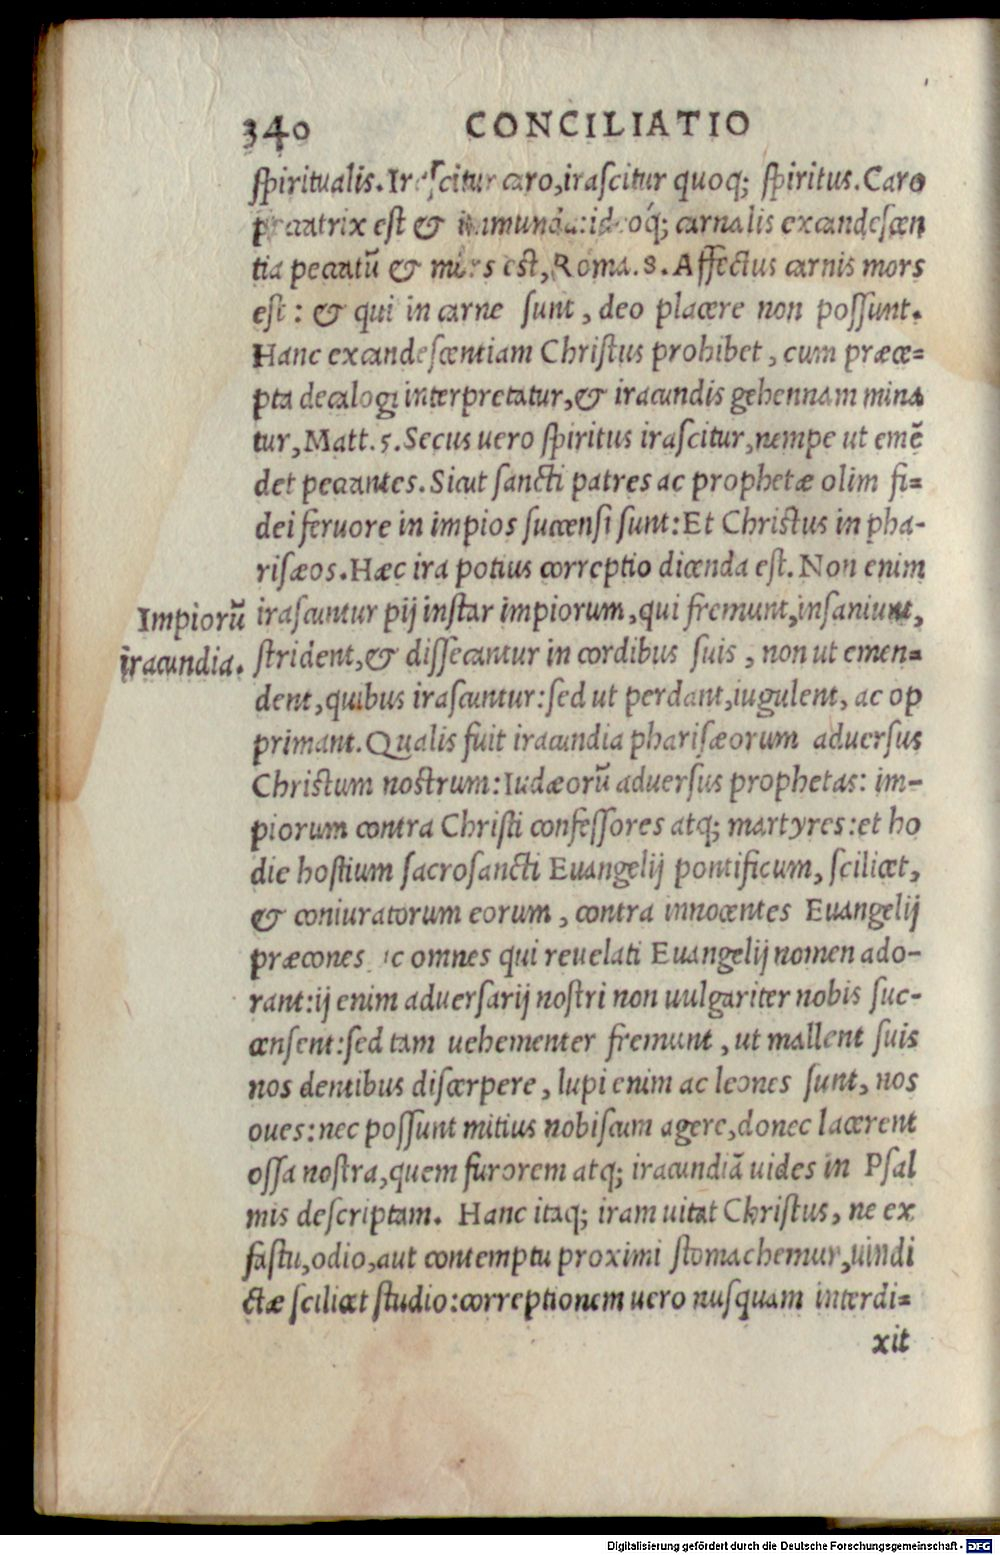 340 CONCILIATIO
spiritualis. Irascitur caro, irascitur quoq; spiritus. Caro
peccatrix est & immunda: ideoq́; carnalis excandescen
tia peccatū & mors est, Roma. 8. Affectus carnis mors
est: & qui in carne sunt, deo placere non possunt.
Hanc excandescentiam Christus prohibet, cum præce=
pta decalogi interpretatur, & iracundis gehennam mina
tur, Matt. 5. Secus uero spiritus irascitur, nempe ut emē
det peccantes. Sicut sancti patres ac prophetæ olim fi=
dei feruore in impios succensi sunt: Et Christus in pha-
risæos. Hæc ira potius correptio dicenda est. Non enim
Impiorū
iracundia.
irascuntur pij instar impiorum, qui fremunt, insaniunt,
strident, & dissecantur in cordibus suis, non ut emen=
dent, quibus irascuntur: sed ut perdant, iugulent, ac op
primant. Qualis fuit iracundia pharisæorum aduersus
Christum nostrum: Iudæorū aduersus prophetas: im-
piorum contra Christi confessores atq; martyres: et ho
die hostium sacrosancti Euangelij pontificum, scilicet,
& coniuratorum eorum, contra innocentes Euangelij
præcones ac omnes qui reuelati Euangelij nomen ado-
rant: ij enim aduersarij nostri non uulgariter nobis suc-
censent: sed tam uehementer fremunt, ut mallent suis
nos dentibus discerpere, lupi enim ac leones sunt, nos
oues: nec possunt mitius nobiscum agere, donec lacerent
ossa nostra, quem furorem atq; iracundiā uides in Psal
mis descriptam. Hanc itaq; iram uitat Christus, ne ex
fastu, odio, aut contemptu proximi stomachemur, uindi
ctæ scilicet studio: correptionem uero nusquam interdi=
xit
Digitalisierung gefördert durch die Deutsche Forschungsgemeinschaft - DFG